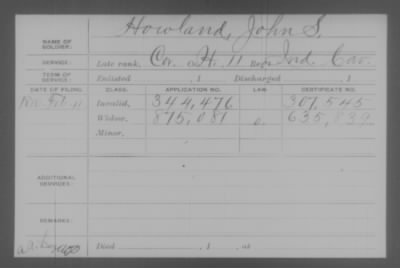 NAME OF SOLDIER: Howland, John S.
SERVICE: Late rank, Co. H. 11 Reg't Ind. Cav.
TERM OF SERVICE: Enlisted , 1 Discharged , 1
DATE OF FILING. CLASS. APPLICATION NO. LAW. CERTIFICATE NO.
Invalid, 344,476 307,545
Widow, 875,081 635,839
Minor,
ADDITIONAL SERVICES:
REMARKS:
Died , 1 , at